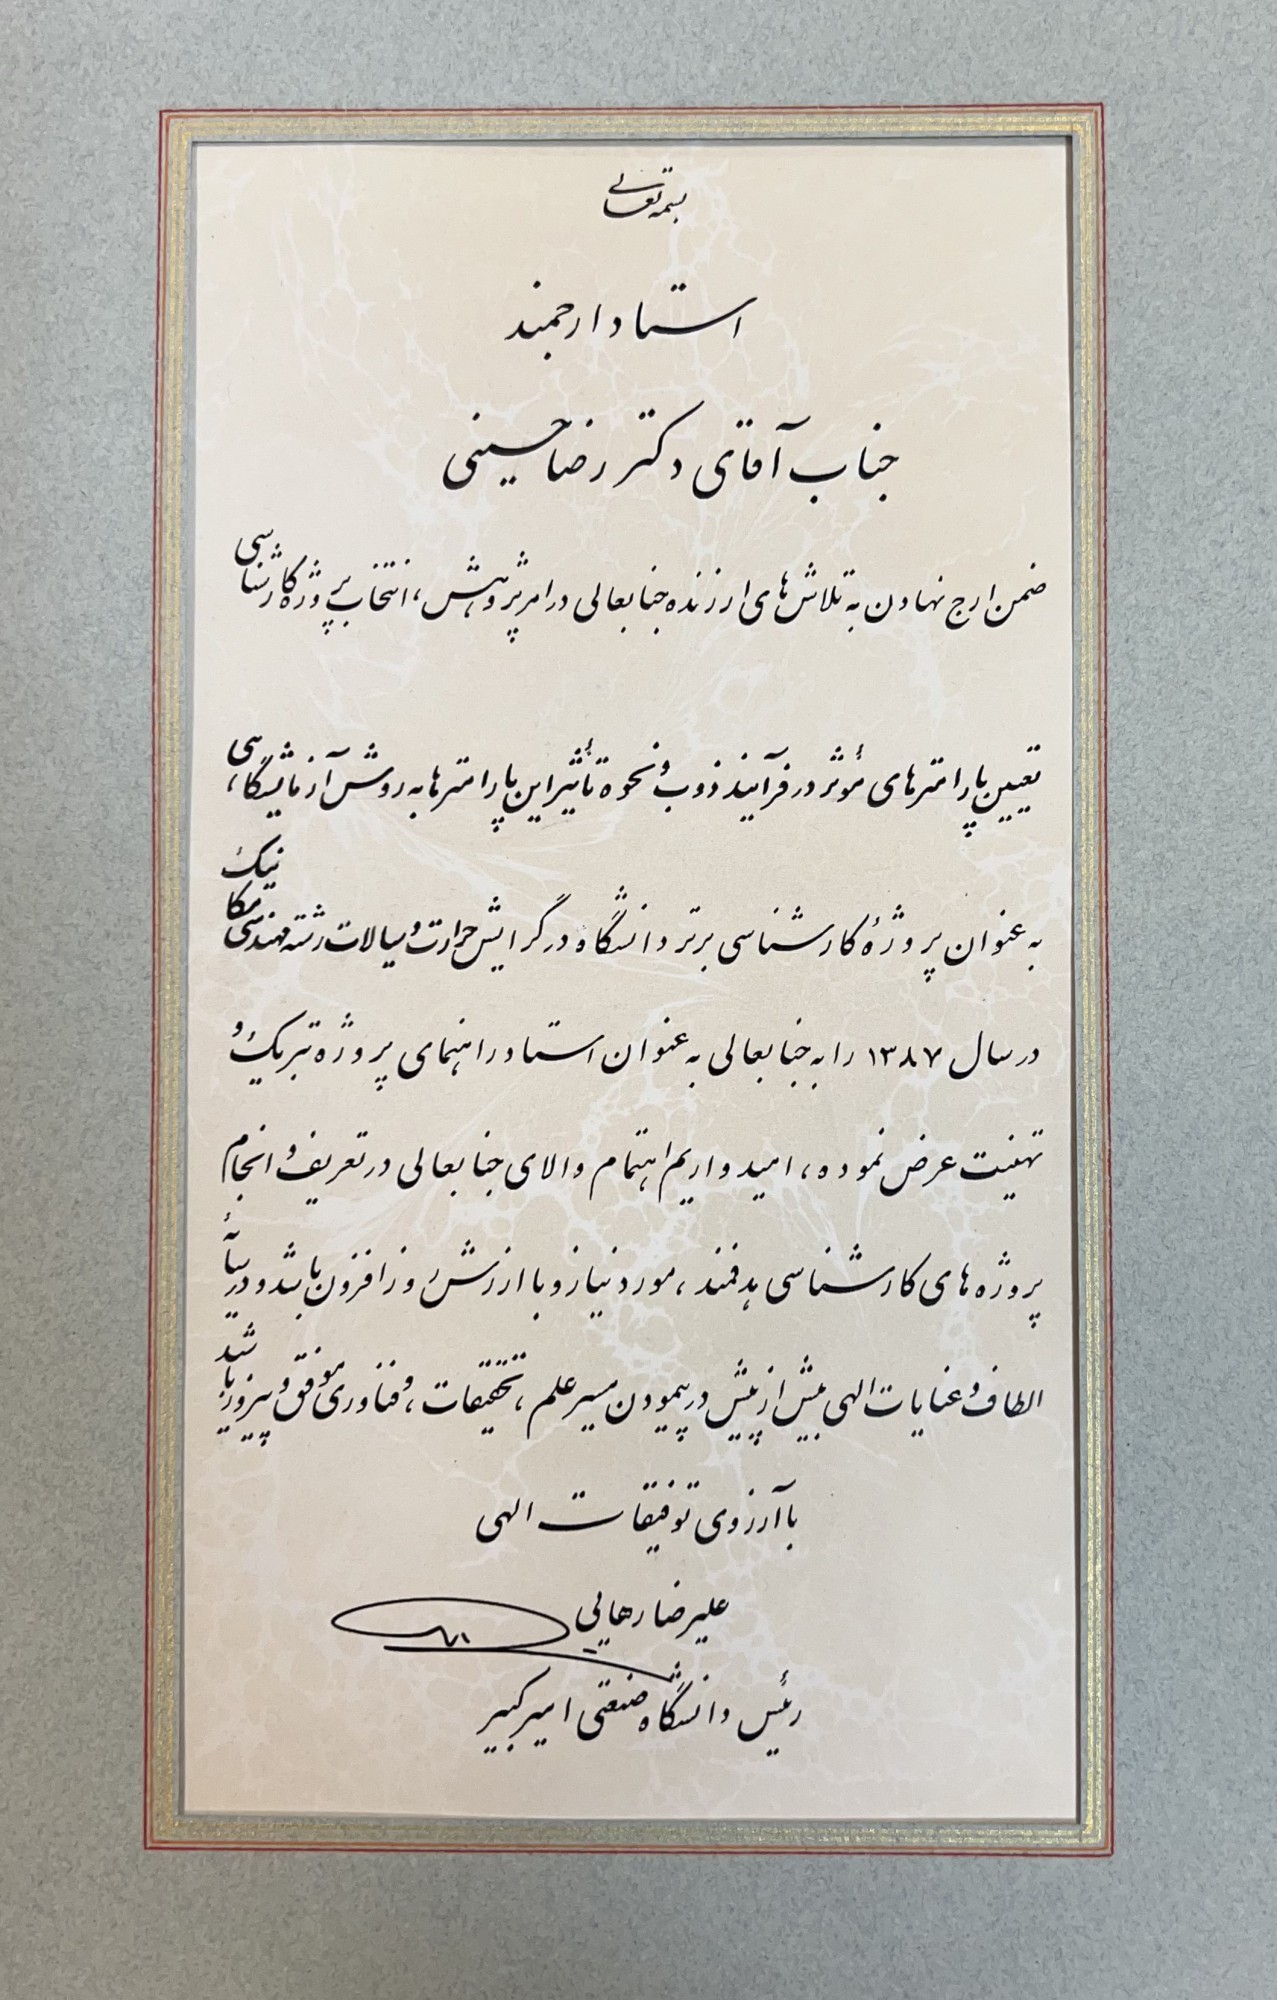 بسمه تعالی
استاد ارجمند
جناب آقای دکتر رضا حسینی
ضمن ارج نهادن به تلاش‌های ارزنده جنابعالی در امر پژوهش، انتخاب پروژه کارشناسی
تعیین پارامترهای مؤثر در فرآیند ذوب و نحوه تأثیر این پارامترها به روش آزمایشگاهی،
به عنوان پروژهٔ کارشناسی برتر دانشگاه در گرایش حرارت و سیالات رشته مهندسی مکانیک
در سال ۱۳۸۷ را به جنابعالی به عنوان استاد راهنمای پروژه تبریک و
تهنیت عرض نموده، امیدواریم اهتمام والای جنابعالی در تعریف و انجام
پروژه های کارشناسی هدفمند، مورد نیاز و با ارزش روزافزون باشد و در سایهٔ
الطاف و عنایات الهی بیش از پیش در پیمودن مسیر علم، تحقیقات، و فناوری موفق و پیروز باشید
با آرزوی توفیقات الهی
علیرضا رهایی
رئیس دانشگاه صنعتی امیرکبیر